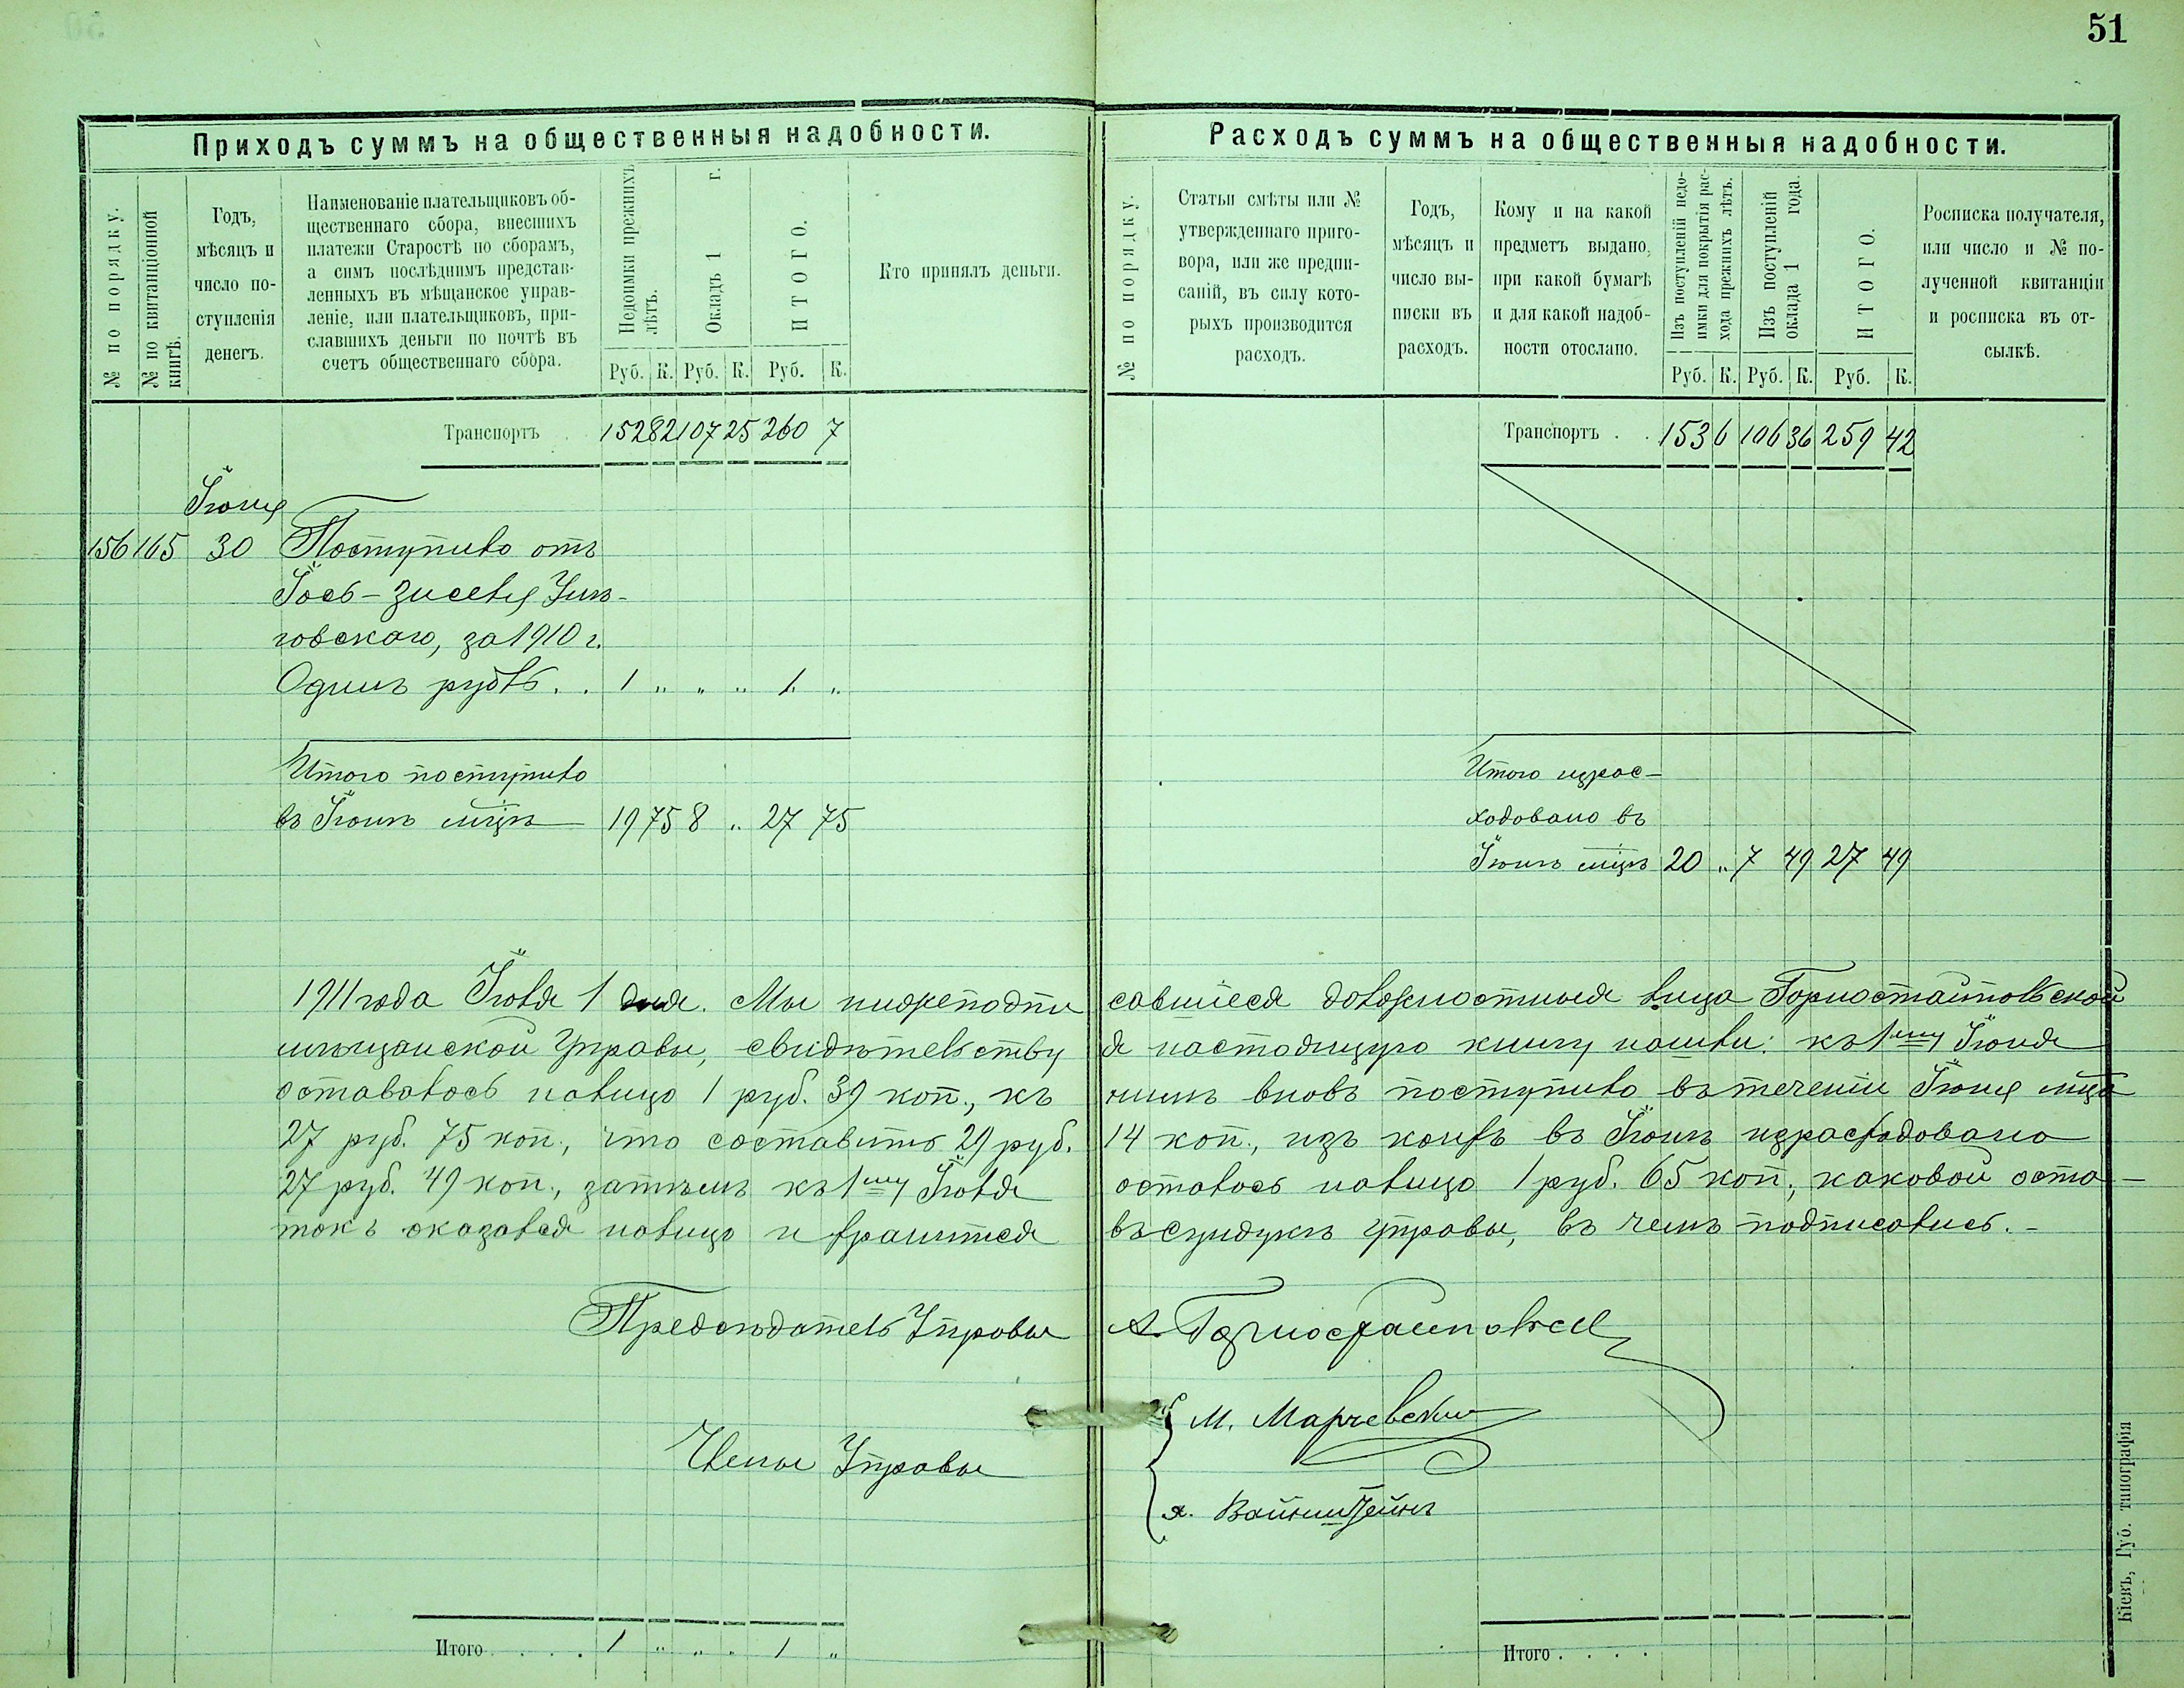 51
Приходъ суммъ на общественныя надобности.
№ по порядку.
№ по квитанціонной
книгѣ.
Годъ,
мѣсяцъ и
число по-
ступленія
денегъ.
Наименованіе плательщиковъ об-
щественнаго сбора, внесшихъ
платежи Старостѣ по сборамъ,
а симъ послѣднимъ представ-
ленныхъ въ мѣщанское управ-
леніе, или плательщиковъ, при-
славшихъ деньги по почтѣ въ
счетъ общественнаго сбора.
Недоимки прежнихъ
лѣтъ.
Окладъ 1 г.
ИТОГО.
Руб. К. Руб. К. Руб. К.
Кто принялъ деньги.
Транспортъ . 152 82 107 25 260 7
Іюня
156 165 30 Поступило отъ
Іось-Зиселя
говскаго, за 1910 г.
Одинъ рубль . . 1 " " " 1 "
Итого поступило
въ Іюнѣ мцѣ 19 75 8 " 27 75
Итого . . . . 1 " " " 1 "
Расходъ суммъ на общественныя надобности.
№ по порядку.
Статьи смѣты или №
утвержденнаго приго-
вора, или же предпи-
саній, въ силу кото-
рыхъ производится
расходъ.
Годъ,
мѣсяцъ и
число вы-
писки въ
расходъ.
Кому и на какой
предметъ выдано,
при какой бумагѣ
и для какой надоб-
ности отослано.
Изъ поступленій недо-
имки для покрытія рас-
хода прежнихъ лѣтъ.
Изъ поступленій
оклада 1 года.
ИТОГО.
Руб. К. Руб. К. Руб. К.
Росписка получателя,
или число и № по-
лученной квитанціи
и росписка въ от-
сылкѣ.
Транспортъ . . 153 6 106 36 259 42
Итого израс-
ходовано въ
Іюнѣ мцѣ 20 " 7 49 27 49
1911 года Іюля 1 дня. Мы нижеподпи савшіеся должностныя лица Горностайпольской
мѣщанской Управы, свидѣтельству я настоящую книгу нашли: къ 1му Іюня
оставалось налицо 1 руб. 39 коп., къ нимъ вновь поступило въ теченіи Іюня мца
27 руб. 75 коп., что составитъ 29 руб. 14 коп., изъ коихъ въ Іюнѣ израсходовано
27 руб. 49 коп., затѣмъ къ 1му Іюля осталось налицо 1 руб. 65 коп., каковой оста-
токъ оказался налицо и хранится въ сундукѣ управы, въ чемъ подписались.-
Предсѣдатель Управы А. Горностайпольс
Члены Управы
М. Марчевскій
Я. Вайнштейнъ
Итого . . . .
Кіевъ, Губ. типографія